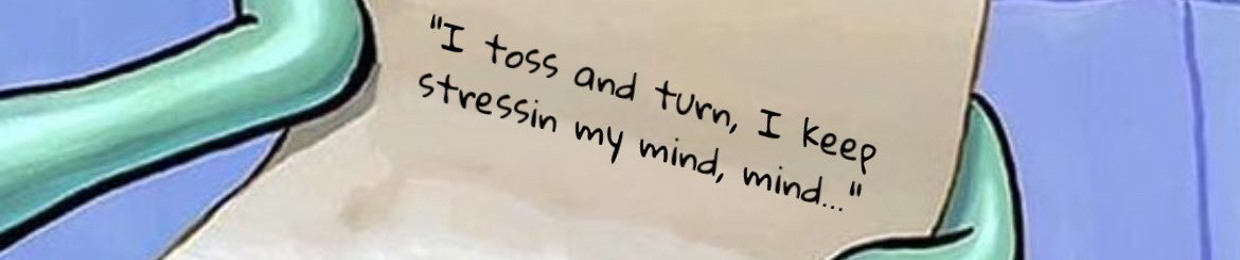 "I toss and turn, I keep
stressin my mind, mind..."